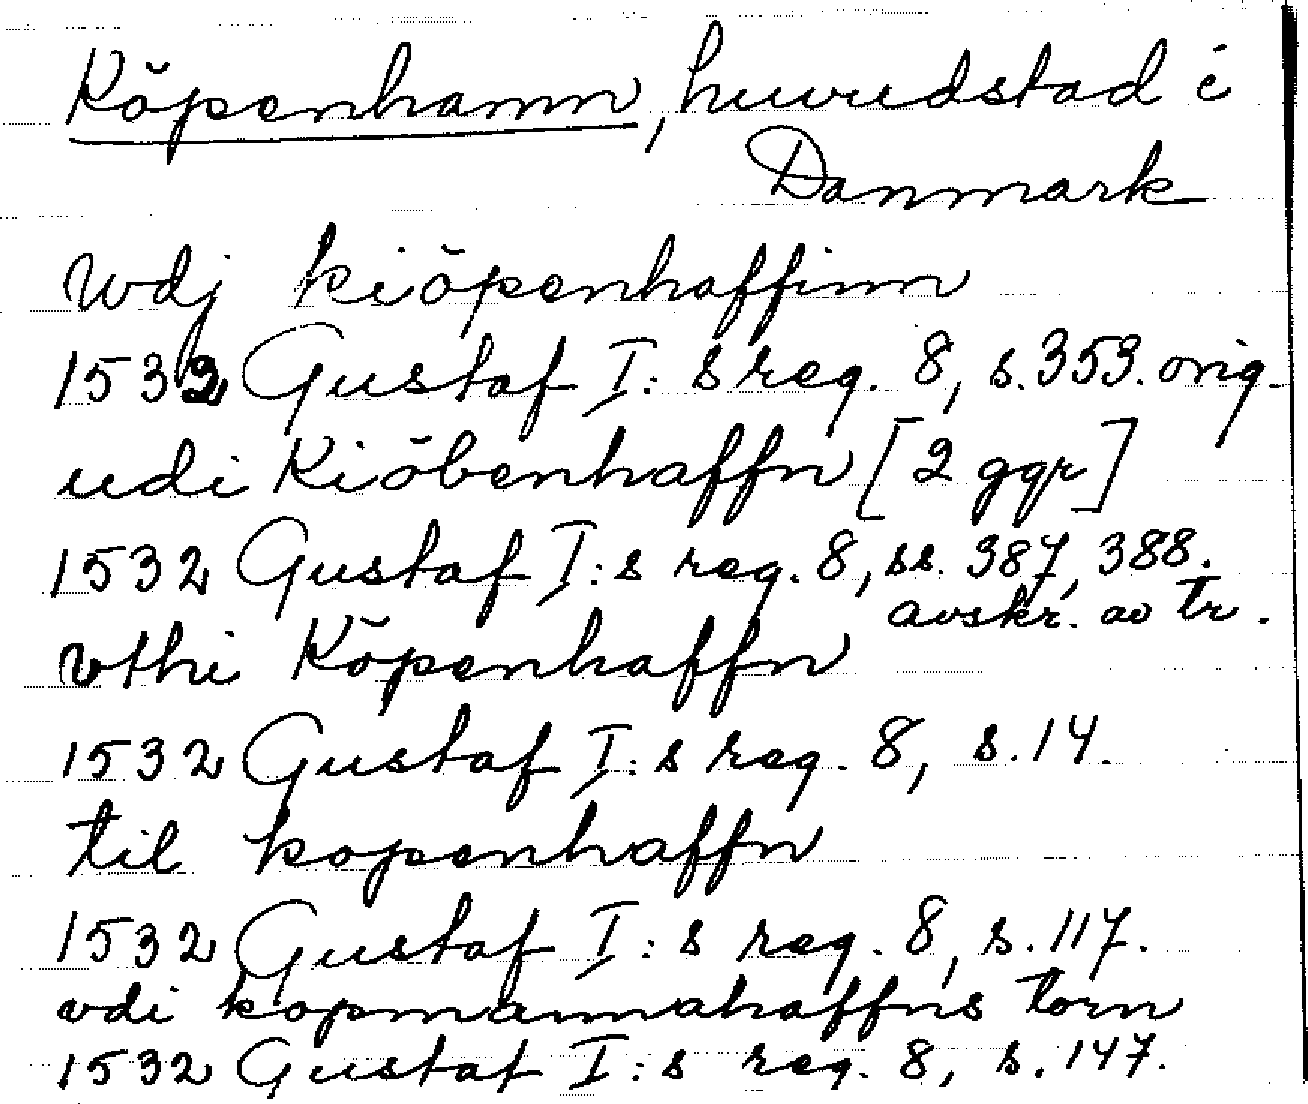 Köpenhamn, huvudstad i
Danmark
Wdj kiöpenhaffinn
1532 Gustaf I:s reg. 8, s. 353. orig.
udi Kiöbenhaffn [2 ggr]
1532 Gustaf I:s reg. 8, ss. 387, 388.
avskr. av tr.
vthi Köpenhaffn
1532 Gustaf I:s reg. 8, s. 14.
til kopenhaffn
1532 Gustaf I:s reg. 8, s. 117.
vdi kopmannahaffns torn
1532 Gustaf I:s reg. 8, s. 147.